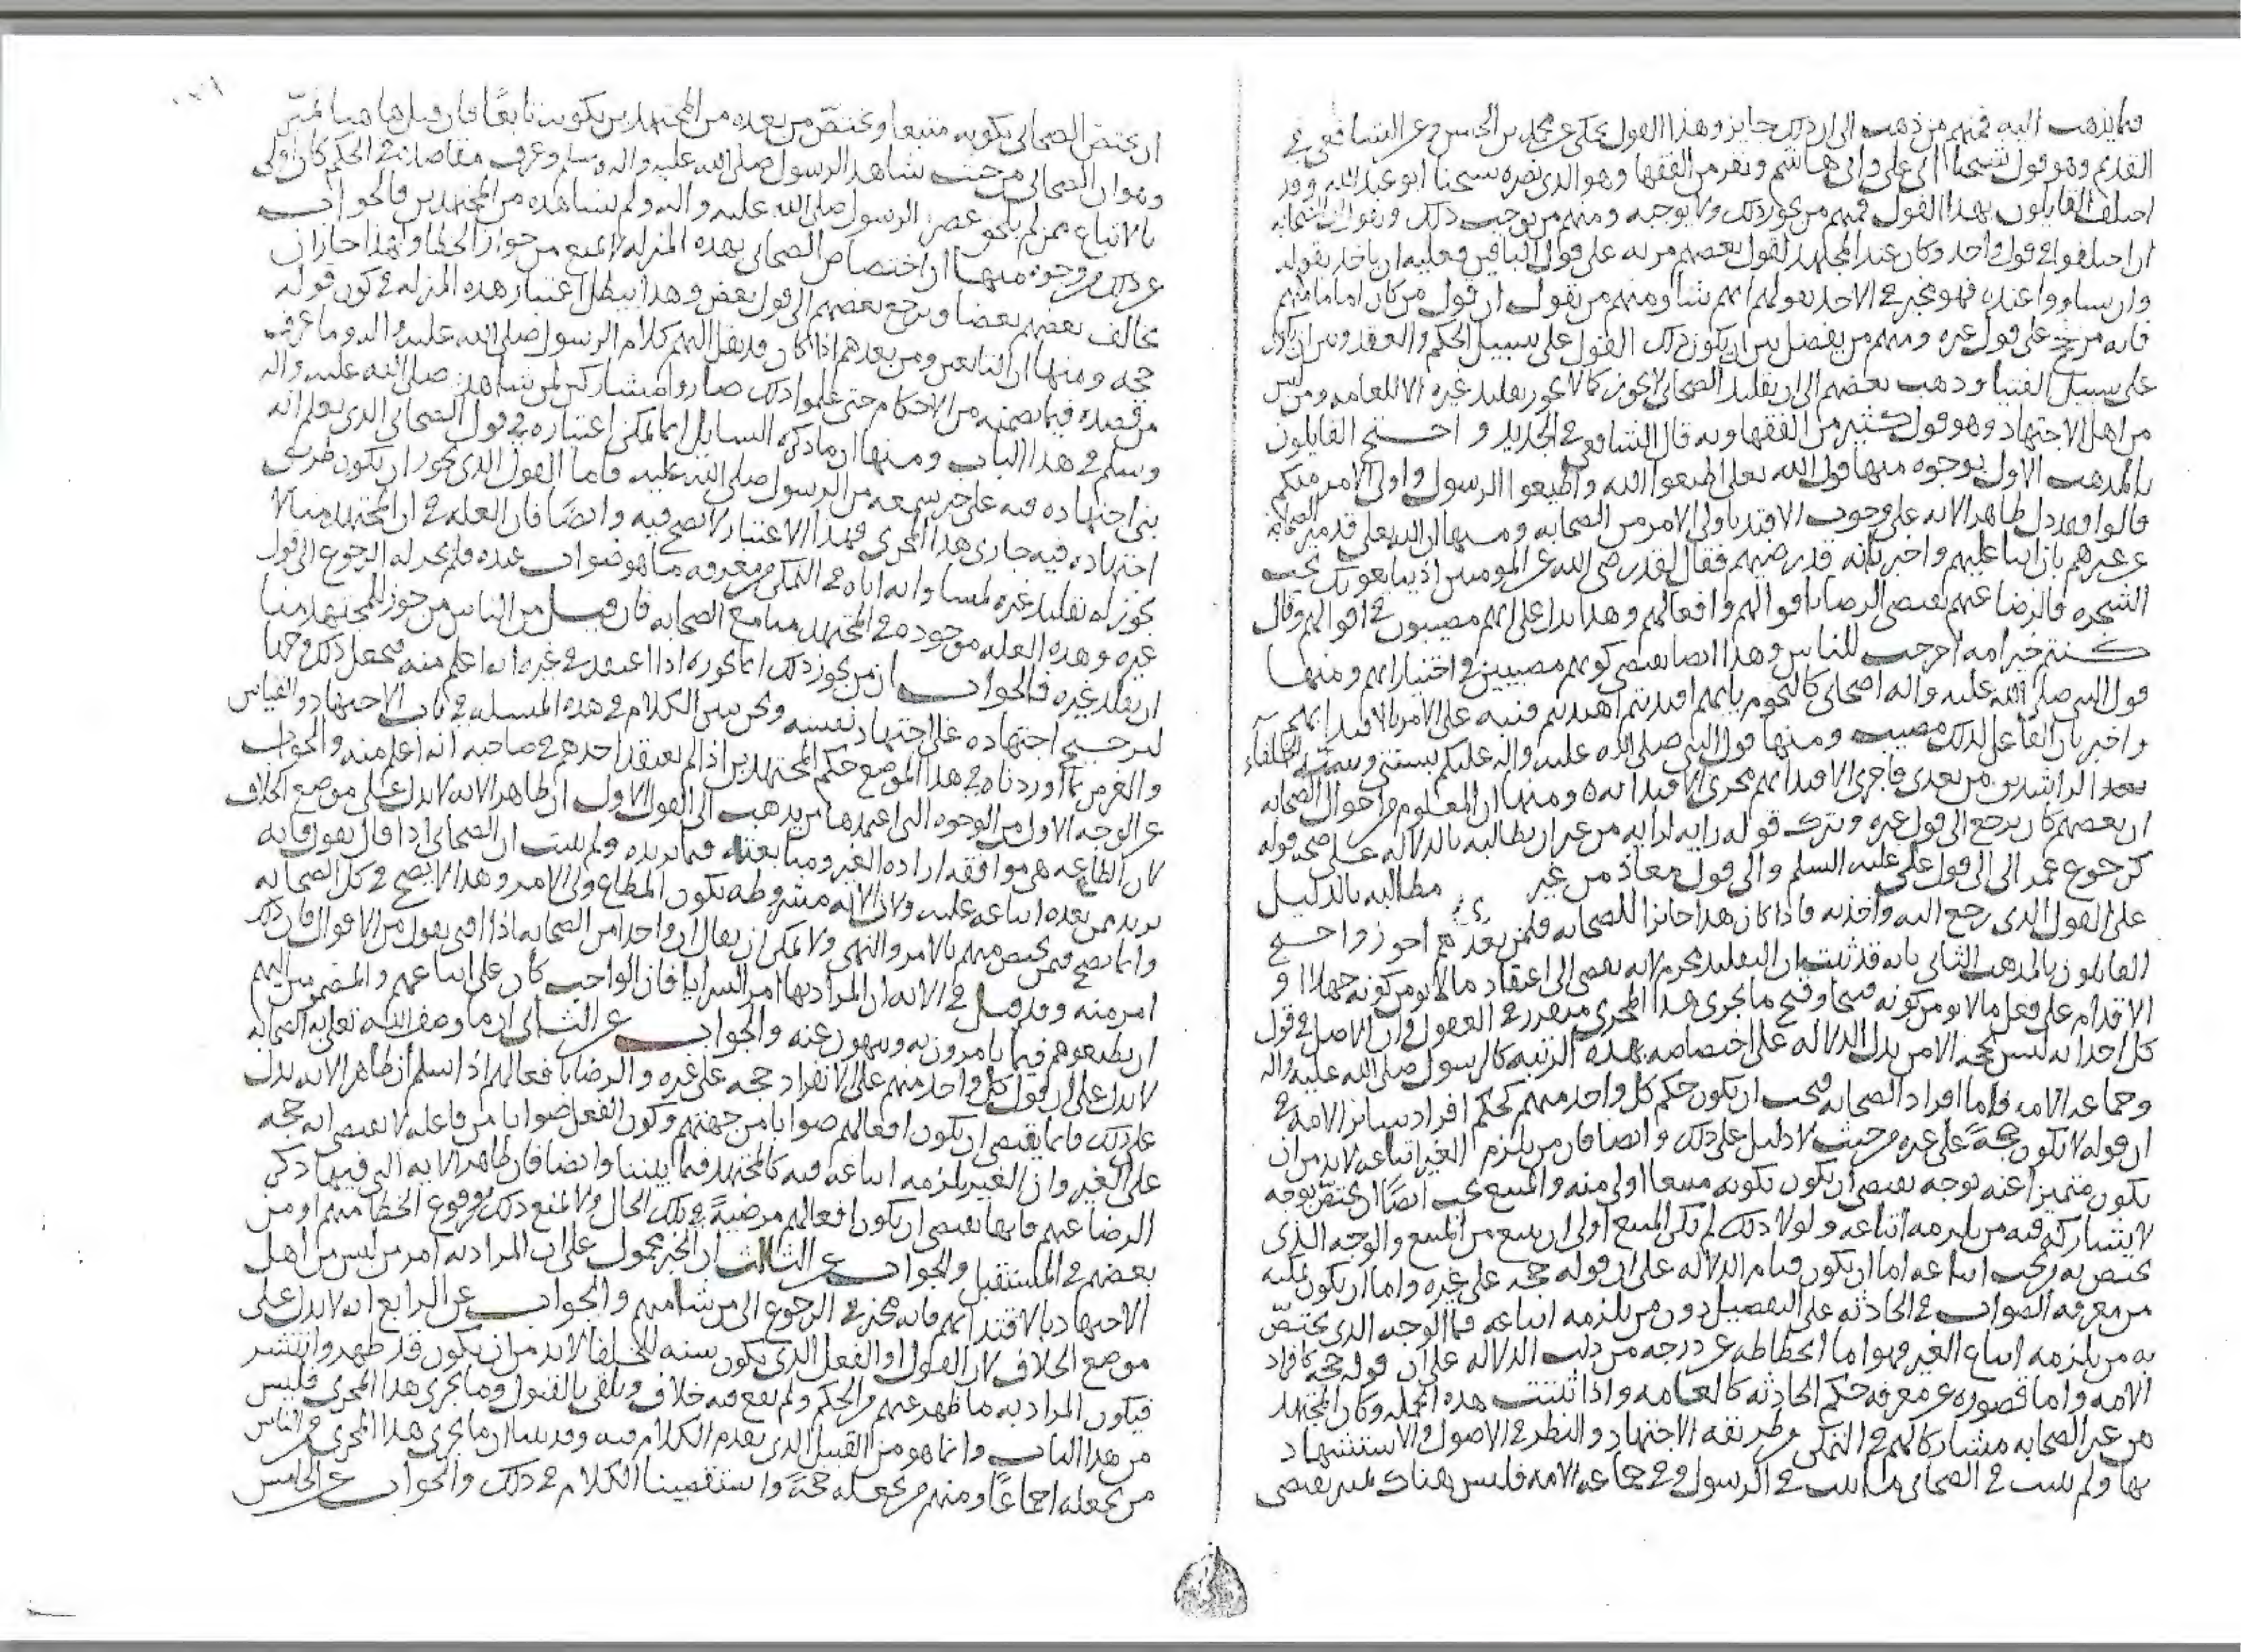 فما يذهب اليه فمنهم من ذهب الى ان ذلك جايز وهذا القول يحكى عن محمد بن الحسن وعن الشافعي في
القديم وهو قول شيخنا ابى على وابى هاشم ونفر من الفقها وهو الذى نصره شيخنا ابو عبد الله وقد
اختلف القايلون بهذا القول فمنهم من يجوز ذلك ولا يوجبه ومنهم من يوجب ذلك ويقول ان الصحابه
ان اختلفوا في قول واحد وكان عند المجتهد لقول بعضهم مزيه على قول الباقين فعليه ان ياخذ بقوله
وان تساووا عنده فهو مخير في الاخذ بقول ايهم شا ومنهم من يقول ان قول من كان اماما منهم
فانه مرجح على قول غيره ومنهم من يفصل بين ان يكون ذلك القول على سبيل الحكم والعقد وبين ان يكون
على سبيل الفتيا وذهب بعضهم الى ان تقليد الصحابى لا يجوز كما لا يجوز تقليد غيره الا للعامه ومن ليس
من اهل الاجتهاد وهو قول كثير من الفقها وبه قال الشافعي في الجديد و احتج القايلون
بالمذهب الاول بوجوه منها قول الله تعلى اطيعوا الله واطيعوا الرسول واولى الامر منكم
قالوا فقد دل ظاهر الايه على وجوب الاقتدا باولى الامر من الصحابه ومنها ان الله تعلى قد ميز الصحابه
عن غيرهم بان اثنا عليهم واخبر بانه قد رضيهم فقال لقد رضى الله عن المومنين اذ يبايعونك تحت
الشجره فالرضا عنهم يقتضى الرضا باقوالهم وافعالهم وهذا يدل على انهم مصيبون في اقوالهم وقال
كنتم خير امه اخرجت للناس وهذا ايضا يقتضى كونهم مصيبين في اختياراتهم ومنها
قول النبى صلى الله عليه واله اصحابى كالنجوم بايهم اقتديتم اهتديتم فنبه على الامر بالاقتدا بهم
واخبر بان الفاعل لذلك مصيب ومنها قول النبى صلى الله عليه واله عليكم بسنتى وسنه الخلفاء
الراشدين من بعدى فاجرى الاقتدا بهم مجرى الاقتدا به ومنها ان المعلوم من احوال الصحابه
ان بعضهم كان يرجع الى قول غيره ويترك قوله ورايه لرايه من غير ان يطالبه بالدلاله على صحه قوله
كرجوع عمر الى قول على عليه السلم والى قول معاذ من غير مطالبه بالدليل
على القول الذى رجع اليه واخذ به فاذا كان هذا جايزا للصحابه فلمن بعدهم اجوز واحتج
القايلون بالمذهب الثانى بانه قد ثبت ان التقليد محرم لانه يفضى الى اعتقاد ما لا يومن كونه جهلا او
الاقدام على فعل ما لا يومن كونه قبيحا وقبح ما يجرى هذا المجرى متقرر في العقول وان الاصل في قول
كل احد انه ليس بحجه الا من يدل الدلاله على اختصاصه بهذه الرتبه كالرسول صلى الله عليه واله
وجماعه الامه فاما افراد الصحابه فيجب ان يكون حكم كل واحد منهم كحكم افراد ساير الامه في
ان قوله لا يكون حجة على غيره من حيث لا دليل على ذلك وايضا فان من يلزم الغير اتباعه لا بد من ان
يكون متميزا عنه بوجه يقتضى ان يكون بكونه متبعا اولى منه والمتبع يجب ايضا ان يختص بوجه
لا يشاركه فيه من يلزمه اتباعه ولولا ذلك لم يكن المتبع اولى ان يتبع من المتبع والوجه الذى
يختص به من يجب اتباعه اما ان يكون قيام الدلاله على ان قوله حجه على غيره واما ان يكون تمكنه
من معرفه الصواب في الحادثه على التفصيل دون من يلزمه اتباعه فاما الوجه الذى يختص
به من يلزمه اتباع الغير فهو اما انحطاطه عن درجه من دلت الدلاله على ان قوله حجه كافراد
الامه واما قصوره عن معرفه حكم الحادثه كالعامه واذا ثبتت هذه الجمله وكان المجتهد
من غير الصحابه مشاركا لهم في التمكن من طريقه الاجتهاد والنظر في الاصول والاستشهاد
بها ولم يثبت في الصحابى ما ثبت في الرسول وفي جماعه الامه فليس هناك تميز يقتضى
ان يختص الصحابى بكونه متبعا ويختص من بعده من المجتهدين بكونه تابعًا فان قيل هاهنا تميّز
وهو ان الصحابى من حيث شاهد الرسول صلى الله عليه واله وسلم وعرف مقاصده في الحكم كان اولى
بالاتباع ممن لم يلحق عصر الرسول صلى الله عليه واله ولم يشاهده من المجتهدين فالجواب
عن ذلك من وجوه منها ان اختصاص الصحابى بهذه المنزله لا يمنع من جواز الخطا ولهذا جاز ان
يخالف بعضهم بعضا ويرجع بعضهم الى قول بعض وهذا يبطل اعتبار هذه المنزله في كون قوله
حجه ومنها ان التابعين ومن بعدهم اذا كان قد نقل اليهم كلام الرسول صلى الله عليه واله وما عرف
من قصده فيما يضمنه من الاحكام حتى علموا ذلك صاروا مشاركين لمن شاهده صلى الله عليه واله
وسلم في هذا الباب ومنها ان ما ذكره السايل انما يمكن اعتباره في قول الصحابى الذى يعلم انه
بنى اجتهاده فيه على خبر سمعه من الرسول صلى الله عليه فاما القول الذى يجوز ان يكون طريق
اجتهاده فيه جارى هذا المجرى فهذا الاعتبار لا يصح فيه وايضًا فان العله في ان المجتهد منا لا
يجوز له تقليد غيره لمساواته اياه في التمكن من معرفه ما هو صواب عنده فلم يجز له الرجوع الى قول
غيره وهذه العله موجوده في المجتهد منا مع الصحابه فان قيل من الناس من جوز للمجتهد منا
ان يقلد غيره فالجواب ان من يجوز ذلك انما يجوزه اذا اعتقد في غيره انه اعلم منه فيجعل ذلك وجها
لترجيح اجتهاده على اجتهاد نفسه ونحن نبين الكلام في هذه المسله في باب الاجتهاد والقياس
والغرض بما اوردناه في هذا الموضع حكم المجتهدين اذا لم يعتقد احدهم في صاحبه انه اعلم منه والجواب
عن الوجه الاول من الوجوه التى اعتمدها من يذهب الى القول الاول ان ظاهر الايه لا يدل على موضع الخلاف
لان الطاعه هى موافقه اراده الغير ومتابعته فيما يريده ولم يثبت ان الصحابى اذا قال بقول فانه
يريد ممن بعده اتباعه عليه ولان الايه مشروطه بكون المطاع ولى الامر وهذا لا يصح في كل الصحابه
وانما يصح فيمن يختص منهم بالامر والنهى ولا يمكن ان يقال ان واحدا من الصحابه اذا افتى بقول من الاقوال فان ذلك
امر منه وقد قيل في الايه ان المراد بها امر السرايا فان الواجب كان على اتباعهم والمضمومين اليهم
ان يطيعوهم فيما يامرون به وينهون عنه والجواب عن الثانى ان ما وصف الله تعلى به الصحابه
لا يدل على ان قول كل واحد منهم على الانفراد حجه على غيره والرضا بافعالهم اذا سلم ان ظاهر الايه يدل
على ذلك فانما يقتضى ان يكون افعالهم صوابا من جهتهم وكون الفعل صوابا من فاعله لا يقتضى انه حجه
على الغير وان الغير يلزمه اتباعه فيه كالمجتهد فيما بيننا وايضا فان ظاهر الايه التى فيها ذكر
الرضا عنهم فانها تقتضى ان يكون افعالهم مرضيةً في تلك الحال ولا يمنع ذلك وقوع الخطا منهم او من
بعضهم في المستقبل والجواب عن الثالث ان الخبر محمول على ان المراد به امر من ليس من اهل
الاجتهاد بالاقتدا بهم فانه مخير في الرجوع الى من شا منهم والجواب عن الرابع انه لا يدل على
موضع الخلاف لان القول او الفعل الذى يكون سنه للخلفا لا بد من ان يكون قد ظهر وانتشر
فيكون المراد به ما ظهر عنهم من الحكم ولم يقع فيه خلاف وتلقى بالقبول وما يجرى هذا المجرى فليس
من هذا الباب وانما هو من القبيل الذى تقدم الكلام فيه وقد بينا ان ما يجرى هذا المجرى من الناس
من يجعله اجماعًا ومنهم من يجعله حجةً واستقصينا الكلام في ذلك والجواب عن الخامس